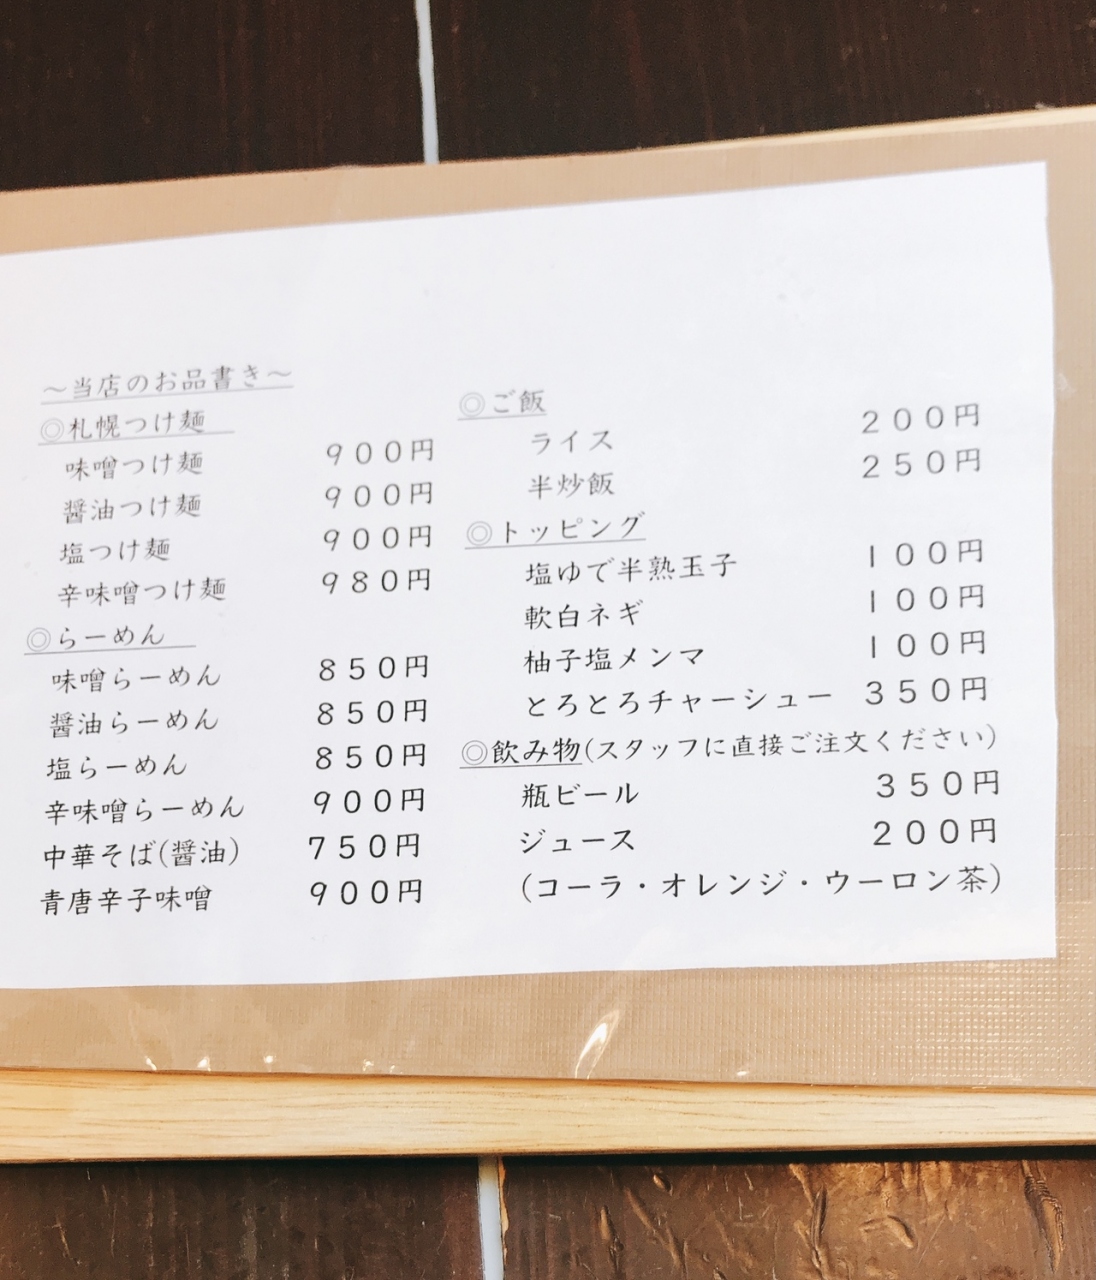 ～当店のお品書き～
◎札幌つけ麺
味噌つけ麺 900円
醤油つけ麺 900円
塩つけ麺 900円
辛味噌つけ麺 980円
◎らーめん
味噌らーめん 850円
醤油らーめん 850円
塩らーめん 850円
辛味噌らーめん 900円
中華そば(醤油) 750円
青唐辛子味噌 900円
◎ご飯
ライス 200円
半炒飯 250円
◎トッピング
塩ゆで半熟玉子 100円
軟白ネギ 100円
柚子塩メンマ 100円
とろとろチャーシュー 350円
◎飲み物(スタッフに直接ご注文ください)
瓶ビール 350円
ジュース 200円
(コーラ・オレンジ・ウーロン茶)